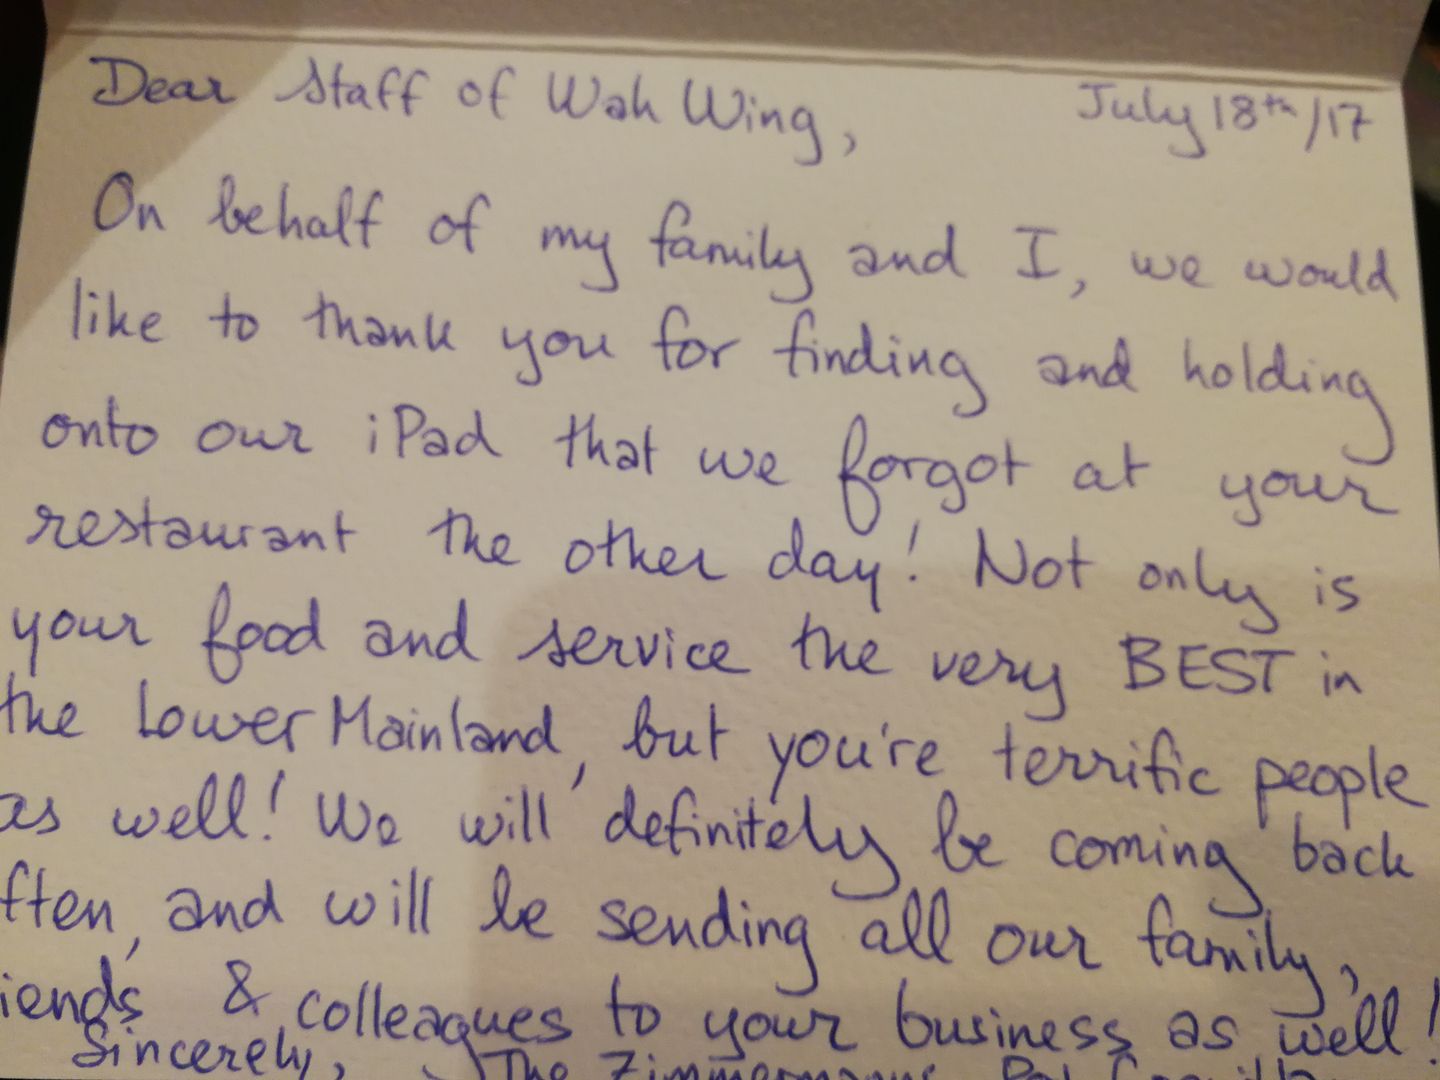 Dear Staff of Wah Wing, July 18th/17
On behalf of my family and I, we would
like to thank you for finding and holding
onto our iPad that we forgot at your
restaurant the other day! Not only is
your food and service the very BEST in
the Lower Mainland, but you're terrific people
as well! We will definitely be coming back
ften, and will be sending all our family,
iends & colleagues to your business as well!
Sincerely, The Zimmermanns